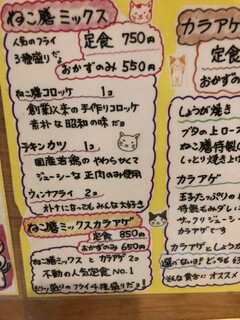 ねこ膳ミックス
人気のフライ
3種盛りだよ
定食 750円
おかずのみ 550円
ねこ膳コロッケ 1コ
創業以来の手作りコロッケ
素朴な昭和の味だヨ
チキンカツ 1コ
国産若鶏のやわらかくて
ジューシーな正肉のみ使用
ウィンナフライ 2コ
オトナになってもみんな大好き
ねこ膳ミックスカラアゲ
定食 850円
おかずのみ 650円
ねこ膳ミックスとカラアゲ2コ
不動の人気定食 No.1
フライ4種盛りだ!
カラアゲ
定食
おかずの
しょうが焼き
ブタの上ロース
ねこ膳特製の
しっとり焼き上
カラアゲ
王子たっぷりの
特製もみダレに
サックリジューシ
カラアゲです
カラアゲとしょうが
選べないヨ!
そんな貴方にオススメ